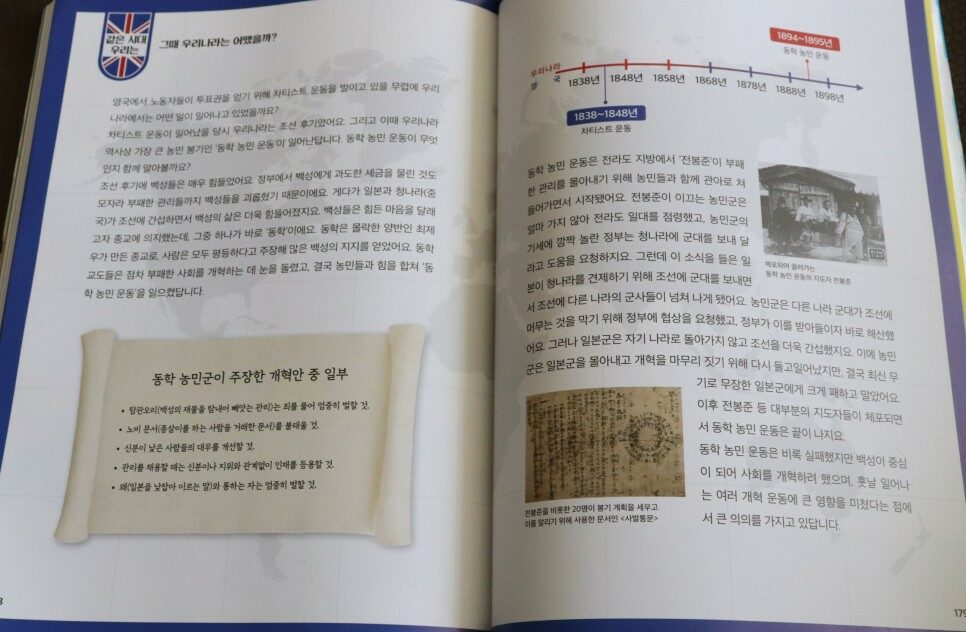 같은 시대
우리는
그때 우리나라는 어땠을까?
영국에서 노동자들이 투표권을 얻기 위해 차티스트 운동을 벌이고 있을 무렵에 우리
나라에서는 어떤 일이 일어나고 있었을까요?
차티스트 운동이 일어났을 당시 우리나라는 조선 후기였어요. 그리고 이때 우리나라
역사상 가장 큰 농민 봉기인 '동학 농민 운동'이 일어난답니다. 동학 농민 운동이 무엇
인지 함께 알아볼까요?
조선 후기에 백성들은 매우 힘들었어요. 정부에서 백성에게 과도한 세금을 물린 것도
모자라 부패한 관리들까지 백성들을 괴롭혔기 때문이에요. 게다가 일본과 청나라(중
국)가 조선에 간섭하면서 백성의 삶은 더욱 힘들어졌지요. 백성들은 힘든 마음을 달래
고자 종교에 의지했는데, 그중 하나가 바로 '동학'이에요. 동학은 몰락한 양반인 최제
우가 만든 종교로, 사람은 모두 평등하다고 주장해 많은 백성의 지지를 얻었어요. 동학
교도들은 점차 부패한 사회를 개혁하는 데 눈을 돌렸고, 결국 농민들과 힘을 합쳐 '동
학 농민 운동'을 일으켰답니다.
동학 농민군이 주장한 개혁안 중 일부
• 탐관오리(백성의 재물을 탐내어 빼앗는 관리)는 죄를 물어 엄중히 벌할 것.
• 노비 문서(종살이를 하는 사람을 거래한 문서)를 불태울 것.
• 신분이 낮은 사람들의 대우를 개선할 것.
• 관리를 채용할 때는 신분이나 지위와 관계없이 인재를 등용할 것.
• 왜(일본을 낮잡아 이르는 말)와 통하는 자는 엄중히 벌할 것.
8
1894~1895년
동학 농민 운동
우리나라
영 국
1838년 1848년 1858년 1868년 1878년 1888년 1898년
1838~1848년
차티스트 운동
동학 농민 운동은 전라도 지방에서 '전봉준'이 부패
한 관리를 몰아내기 위해 농민들과 함께 관아로 쳐
들어가면서 시작됐어요. 전봉준이 이끄는 농민군은
얼마 가지 않아 전라도 일대를 점령했고, 농민군의
기세에 깜짝 놀란 정부는 청나라에 군대를 보내 달
라고 도움을 요청하지요. 그런데 이 소식을 들은 일
본이 청나라를 견제하기 위해 조선에 군대를 보내면
서 조선에 다른 나라의 군사들이 넘쳐 나게 됐어요. 농민군은 다른 나라 군대가 조선에
머무는 것을 막기 위해 정부에 협상을 요청했고, 정부가 이를 받아들이자 바로 해산했
어요. 그러나 일본군은 자기 나라로 돌아가지 않고 조선을 더욱 간섭했지요. 이에 농민
군은 일본군을 몰아내고 개혁을 마무리 짓기 위해 다시 들고일어났지만, 결국 최신 무
기로 무장한 일본군에게 크게 패하고 말았어요.
이후 전봉준 등 대부분의 지도자들이 체포되면
서 동학 농민 운동은 끝이 나지요.
동학 농민 운동은 비록 실패했지만 백성이 중심
이 되어 사회를 개혁하려 했으며, 훗날 일어나
는 여러 개혁 운동에 큰 영향을 미쳤다는 점에
서 큰 의의를 가지고 있답니다.
체포되어 끌려가는
동학 농민 운동의 지도자 전봉준
전봉준을 비롯한 20명이 봉기 계획을 세우고
이를 알리기 위해 사용한 문서인 <사발통문>
179